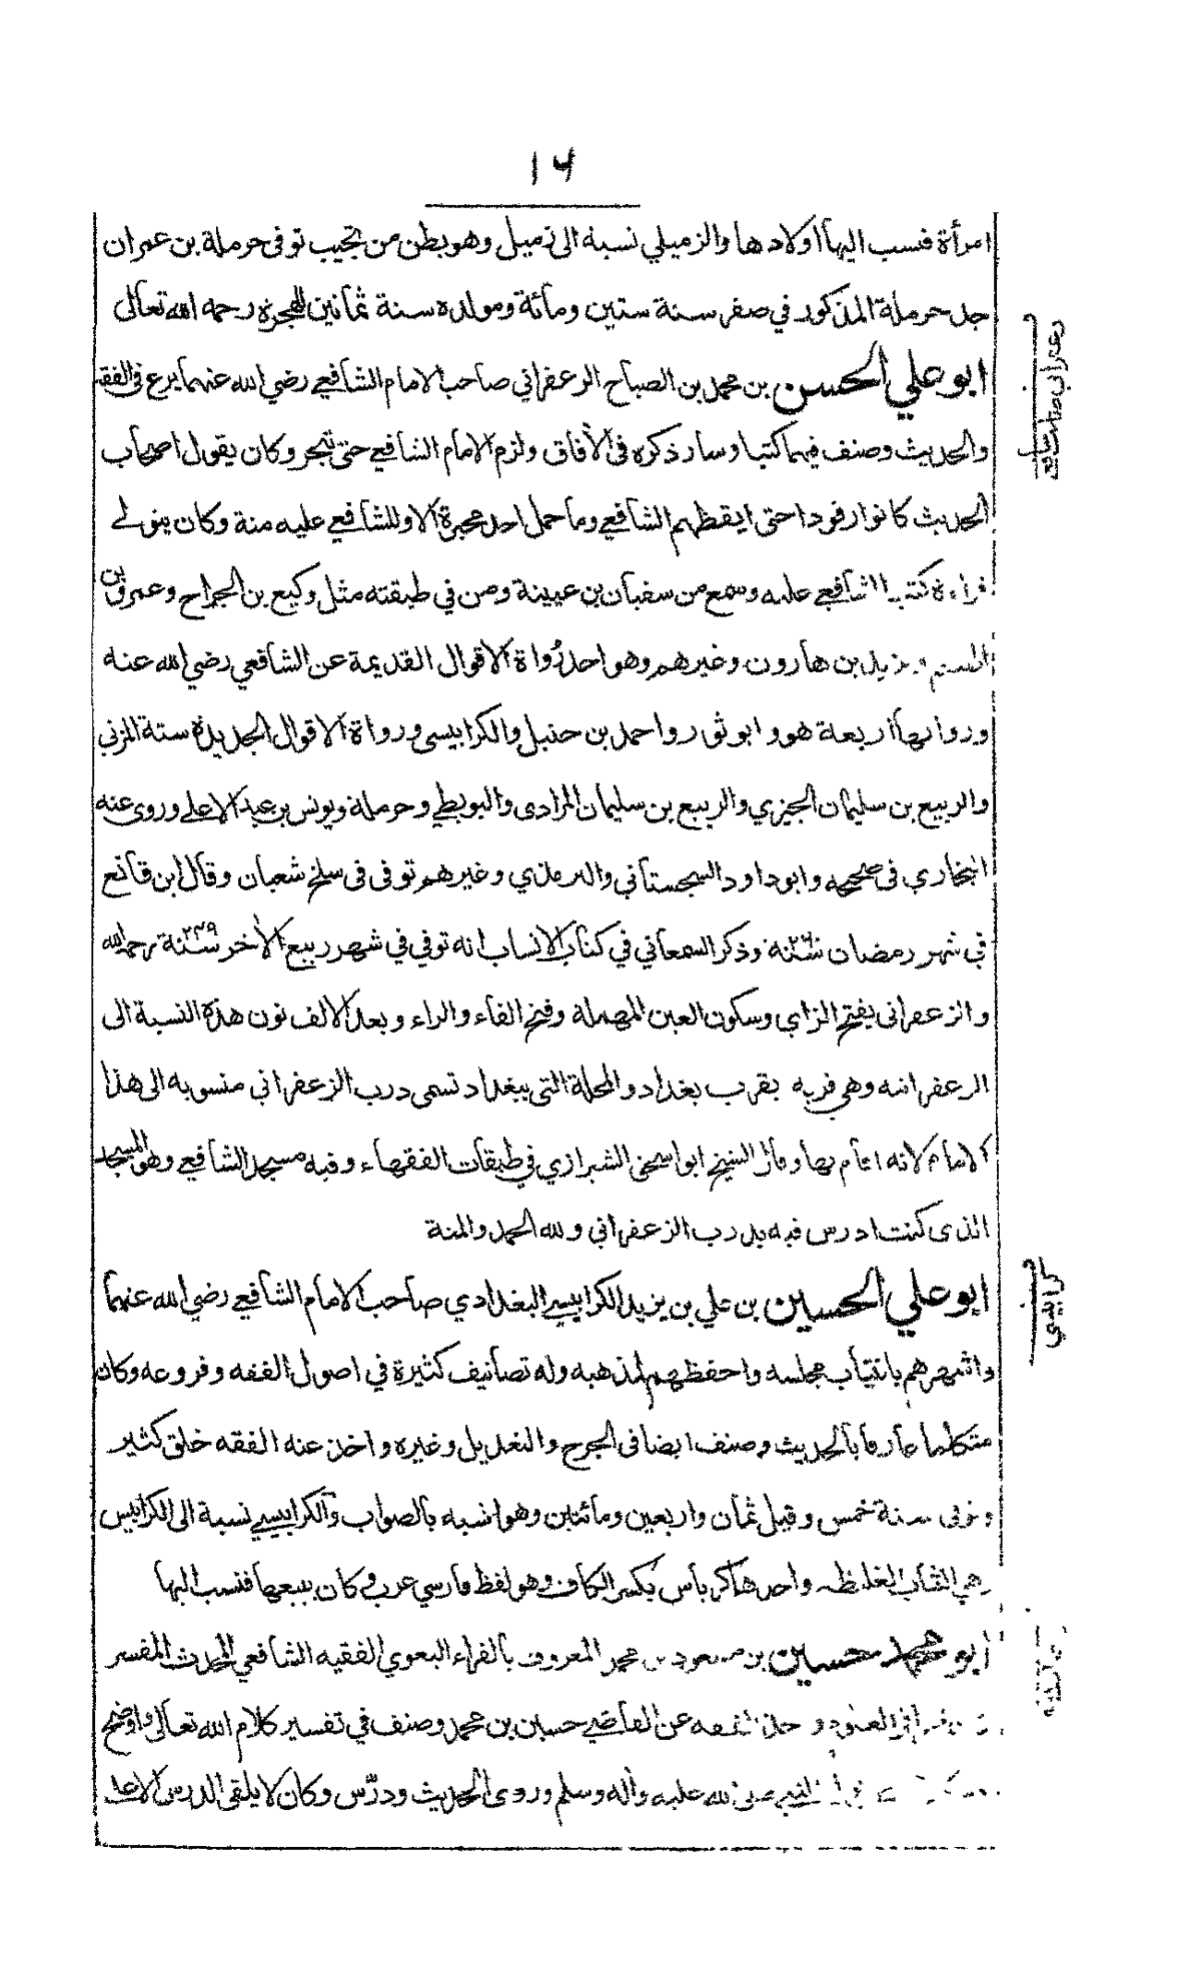 ١٤
امرأة فنسب اليها اولادها والزميلي نسبة الى زميل وهو بطن من تجيب توفى حرملة بن عمران
جد حرملة المذكور في صفر سنة ستين ومائة ومولده سنة ثمانين للهجرة رحمه الله تعالى
ابو علي الحسن بن محمد بن الصباح الزعفراني صاحب الامام الشافعي رضي الله عنهما برع فى الفقه
والحديث وصنف فيهما كتبا وسار ذكره فى الآفاق ولزم الامام الشافعي حتى تبحر وكان يقول اصحاب
الحديث كانوا رقودا حتى ايقظهم الشافعي وما حمل احد محبرة الا وللشافعي عليه منة وكان يتولى
قراءة كتب الشافعي عليه وسمع من سفيان بن عيينة ومن في طبقته مثل وكيع بن الجراح وعمرو بن
الهيثم ويزيد بن هارون وغيرهم وهو احد رُواة الاقوال القديمة عن الشافعي رضي الله عنه
ورواتها اربعة هو و ابو ثور و احمد بن حنبل والكرابيسى ورواة الاقوال الجديدة ستة المزني
والربيع بن سليمان الجيزي والربيع بن سليمان المرادى والبويطي وحرملة ويونس بن عبد الاعلى وروى عنه
البخاري فى صحيحه وابو داود السجستاني والترمذي وغيرهم توفى فى سلخ شعبان وقال ابن قانع
في شهر رمضان سنة ٢٦٠ وذكر السمعاني في كتاب الانساب انه توفي في شهر ربيع الآخر سنة ٢٤٩ رحمه الله
والزعفرانى بفتح الزاي وسكون العين المهملة وفتح الفاء والراء وبعد الالف نون هذه النسبة الى
الزعفرانيه وهي قريه بقرب بغداد والمحلة التى ببغداد تسمى درب الزعفراني منسوبه الى هذا
الامام لانه اقام بها وقال الشيخ ابو اسحق الشيرازي في طبقات الفقهاء وفيه مسجد الشافعي وهو المسجد
الذى كنت ادرس فيه بدرب الزعفراني ولله الحمد والمنة
ابو علي الحسين بن علي بن يزيد الكرابيسي البغدادي صاحب الامام الشافعي رضي الله عنهما
واشهرهم بانتياب مجلسه واحفظهم لمذهبه وله تصانيف كثيرة في اصول الفقه وفروعه وكان
متكلما عارفا بالحديث وصنف ايضا فى الجرح والتعديل وغيره واخذ عنه الفقه خلق كثير
وتوفى سنة خمس وقيل ثمان واربعين ومائتين وهو اشبه بالصواب والكرابيسي نسبة الى الكرابيس
وهي الثياب الغليظه واحدها كرباس بكسر الكاف وهو لفظ فارسي عرب وكان يبيعها فنسب اليها
ابو محمد حسين بن مسعود بن محمد المعروف بالفراء البغوي الفقيه الشافعي المحدث المفسر
بحرا فى العلوم و اخذ الفقه عن القاضي حسين بن محمد وصنف في تفسير كلام الله تعالى واوضح
النبي صلى الله عليه وآله وسلم وروى الحديث ودرّس وكان لا يلقى الدرس الا على
زعفرانى صاحب شافعى
كرابيسي